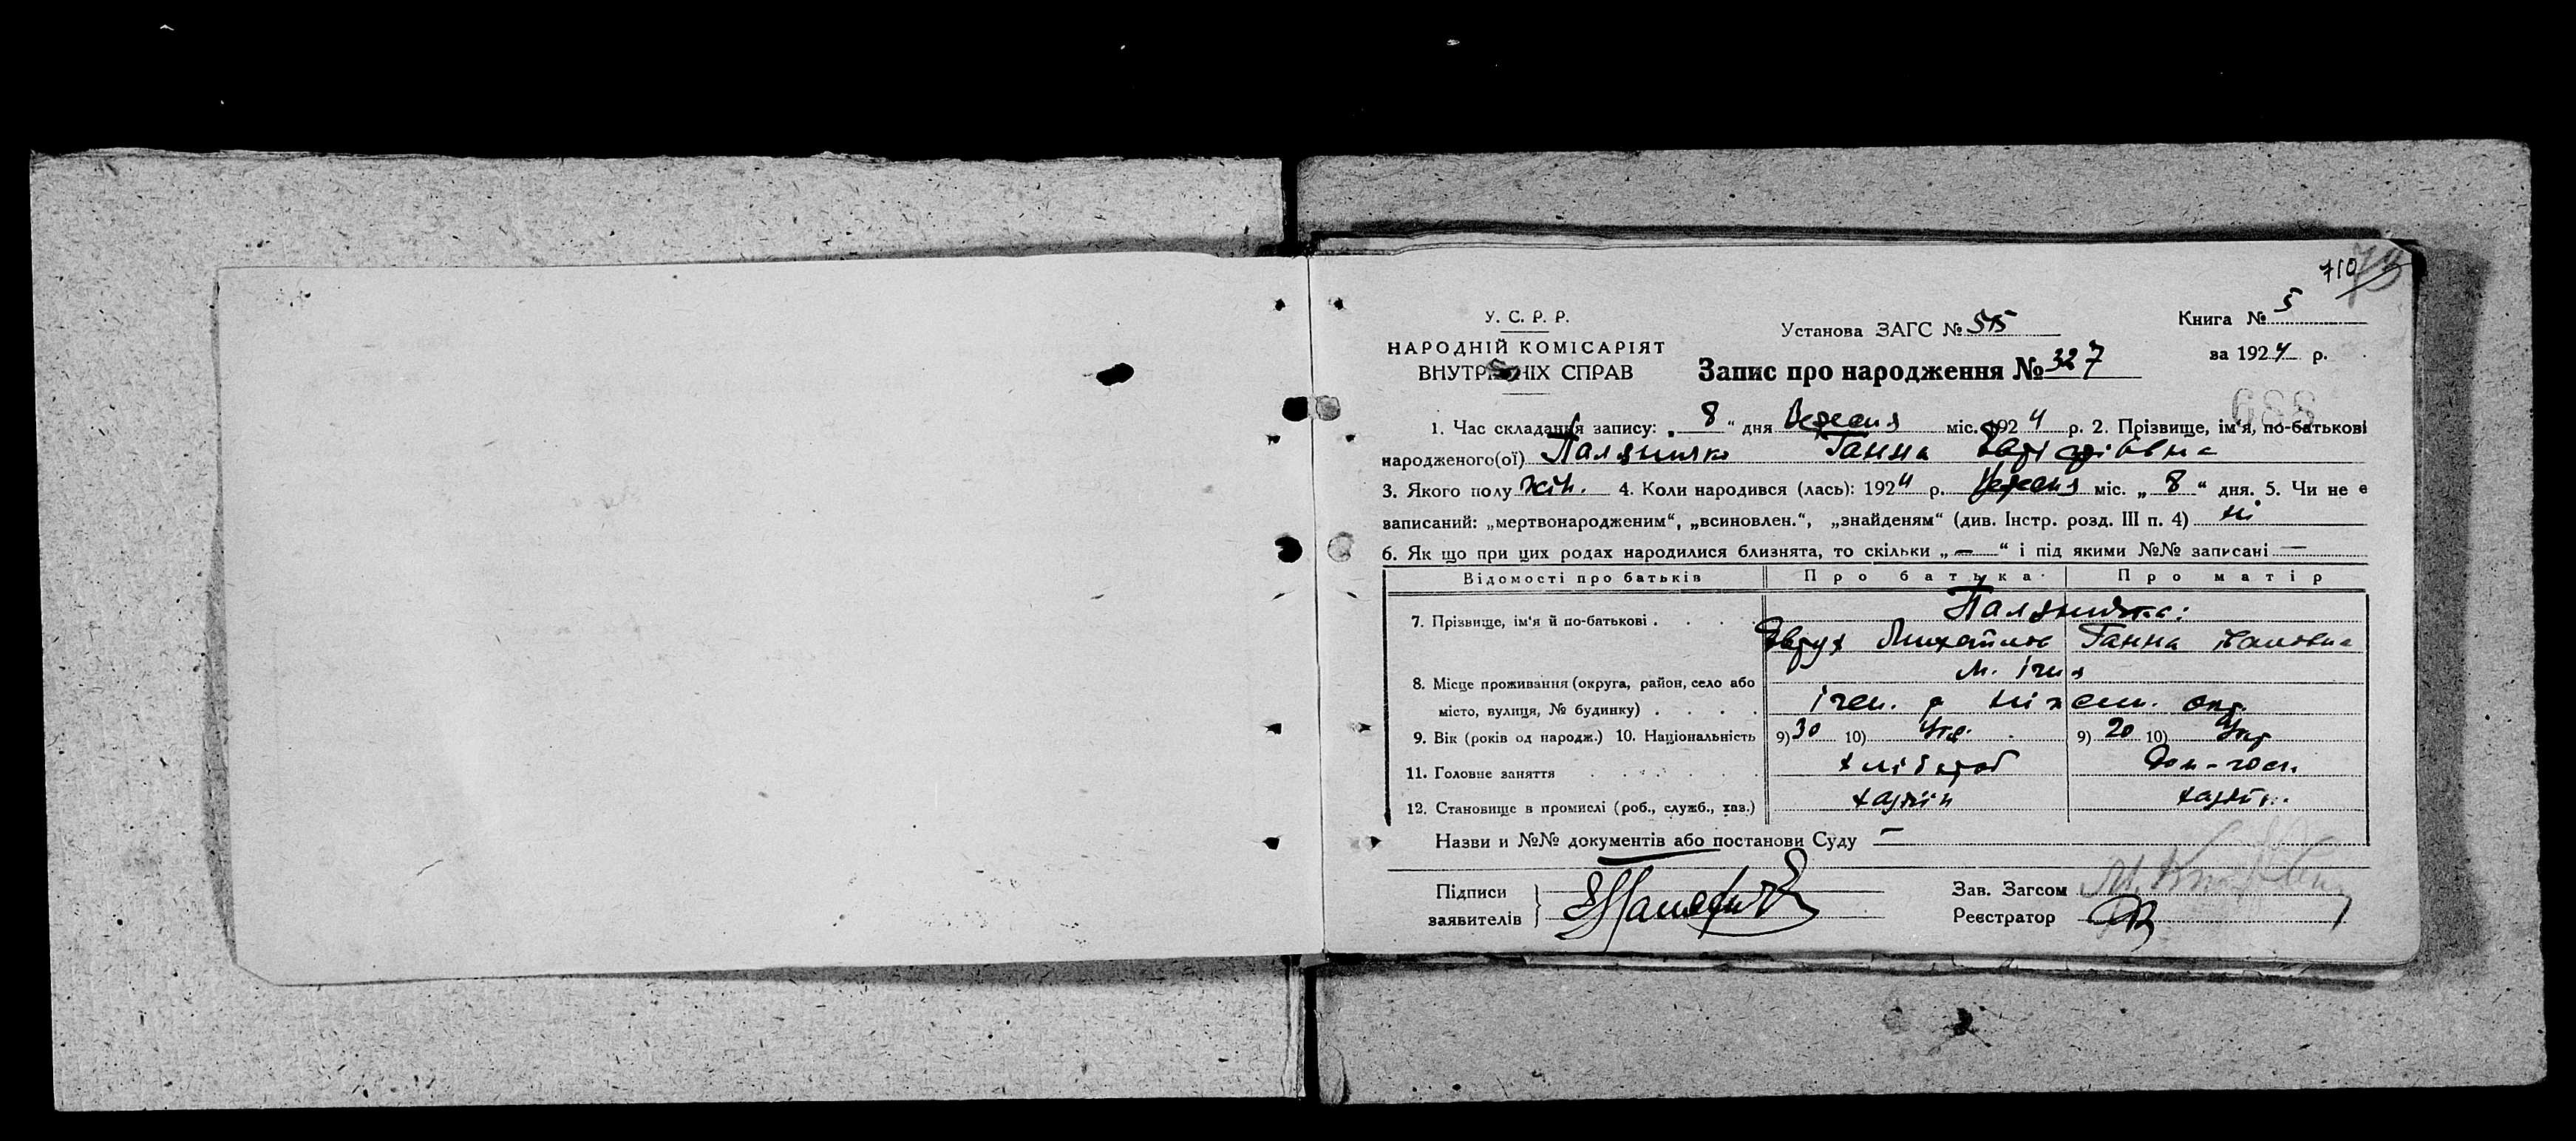 710 79
У. С. Р. Р.
НАРОДНІЙ КОМІСАРІЯТ
ВНУТРІШНІХ СПРАВ
Установа ЗАГС № 515
Книга № 5
Запис про народження № 327
за 1924 р.
688
1. Час складання запису: „ 8 “ дня Вересня міс. 1924 р. 2. Прізвище, ім'я, по-батькові
народженого(ої) Ганна
3. Якого полу жін. 4. Коли народився (лась): 1924 р. Вересня міс. „ 8 “ дня. 5. Чи не є
записаний: „мертвонародженим“, „всиновлен.“, „знайденям“ (див. Інстр. розд. III п. 4) ні
6. Як що при цих родах народилися близнята, то скільки „ — “ і під якими №№ записані —
Відомості про батьків Про батька Про матір
7. Прізвище, ім'я й по-батькові . . . .
Михайлов Ганна Івановна
м. Ічня
8. Місце проживання (округа, район, село або
місто, вулиця, № будинку) . . . . Ічен. р Ніжен. окр.
9. Вік (років од народж.) 10. Національність 9) 30 10) Укр. 9) 20 10) Укр
11. Головне заняття . . . . . . . хлібороб Дом-госп.
12. Становище в промислі (роб., служб., хаз.) хазяїн хазяїн.
Назви и №№ документів або постанови Суду —
Підписи
заявителів
Зав. Загсом
Реєстратор